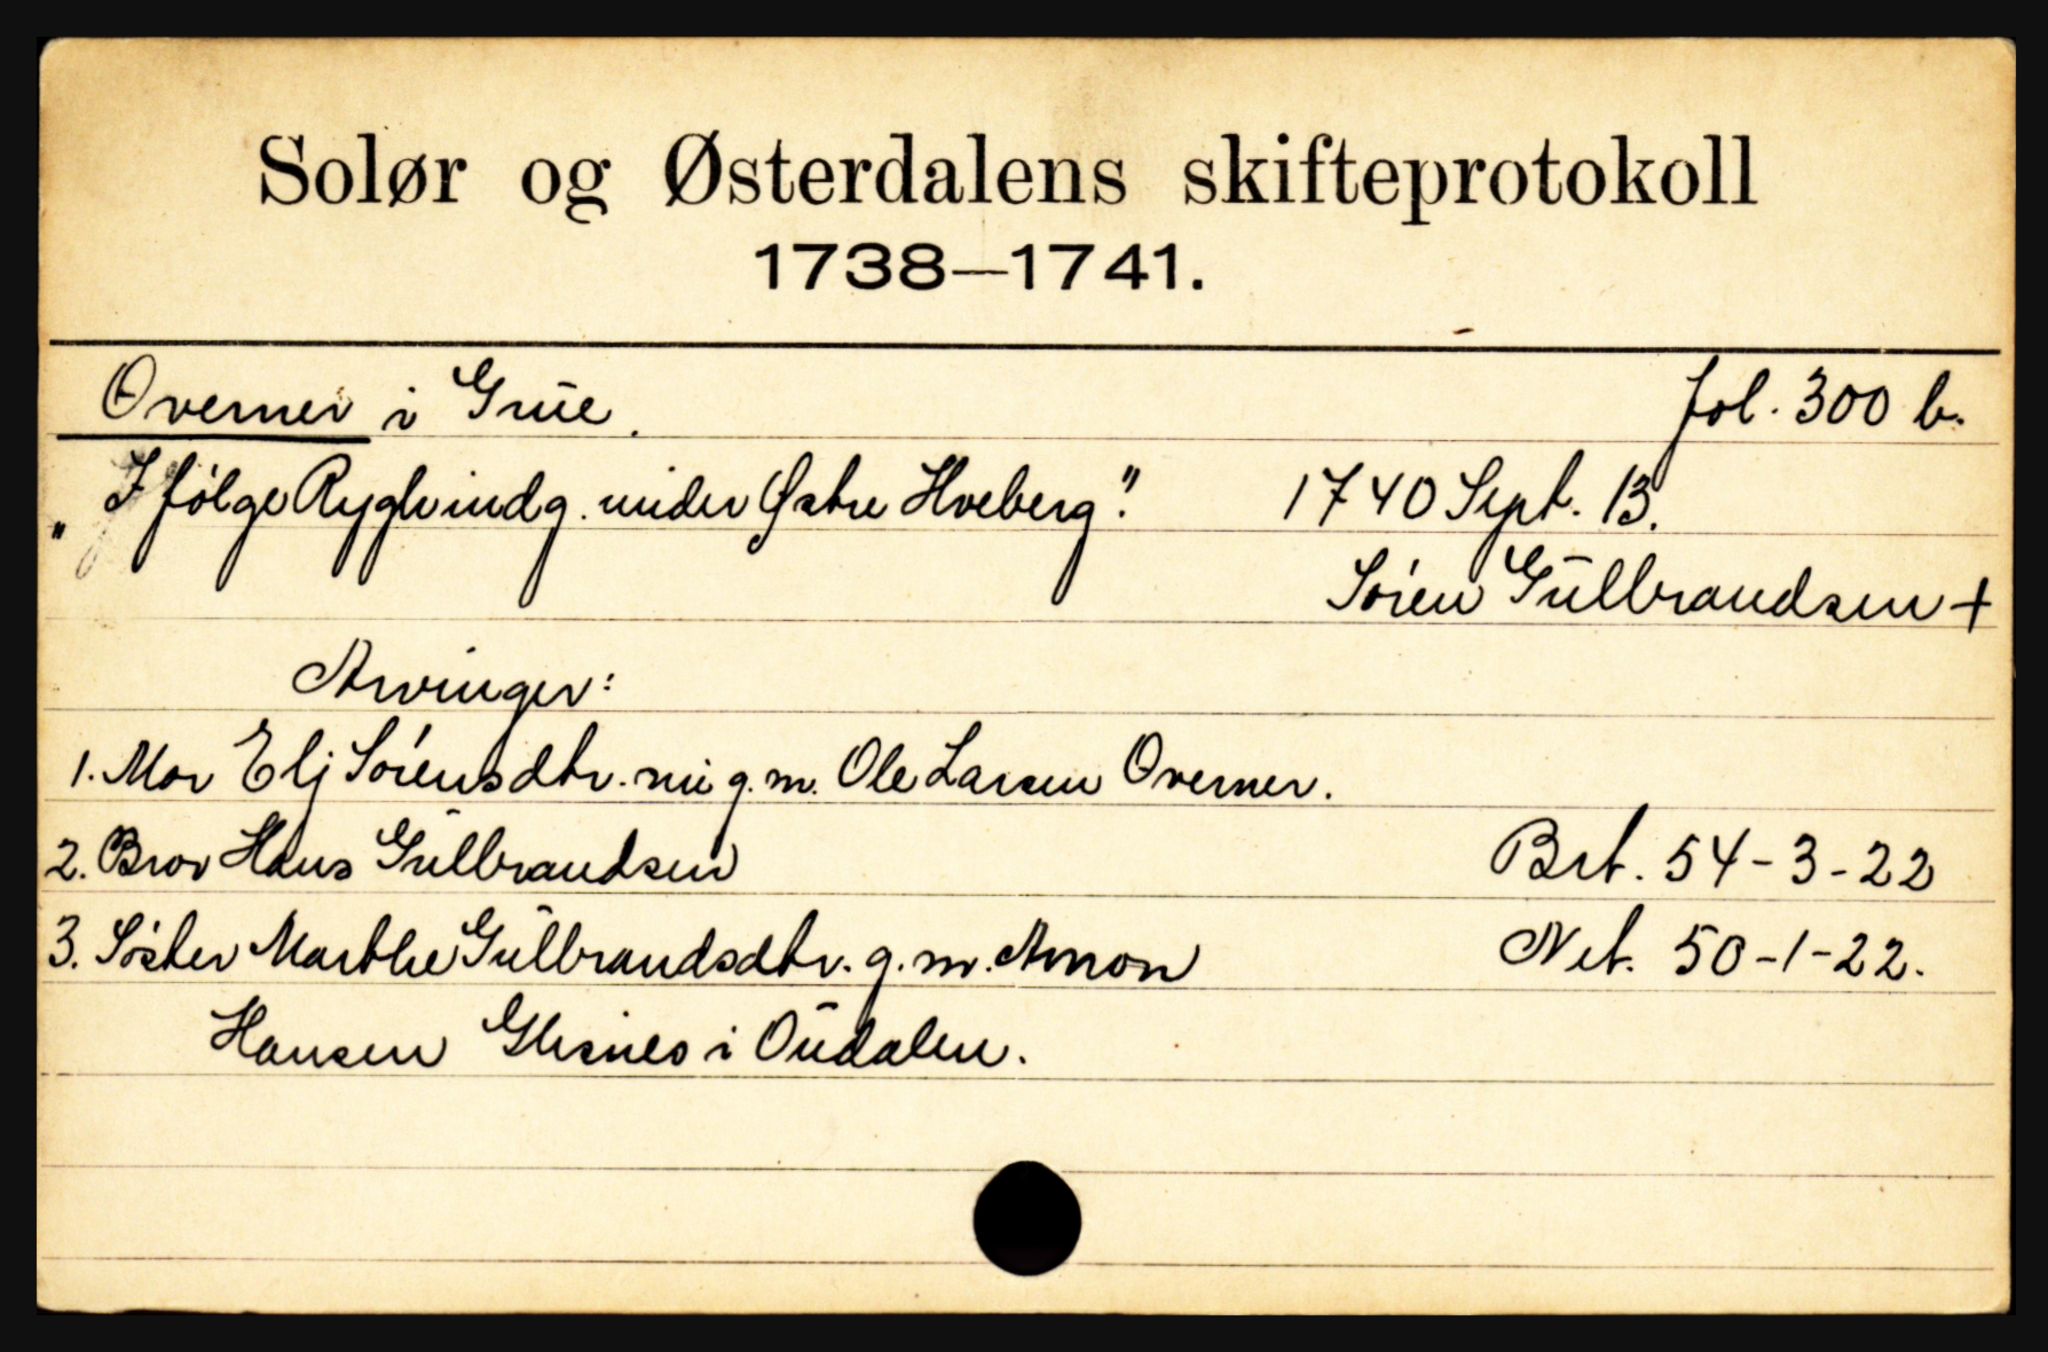 Solør og Østerdalens skifteprotokoll
1738—1741.
Overner i Grue. fol. 300 b.
"I følge Ryghvindg. under Østre Hveberg". 1740 Sept. 13.
Sören Gulbrandsen +
Arvinger:
1. Mor Elj Sörensdtr. nu g. m. Ole Larsen Overner.
2. Bror Hans Gulbrandsen Brt. 54-3-22
3. Söster Marthe Gulbrandsdtr. g. m. Amon Net. 50-1-22.
Hansen Glesnes i Oudalen.